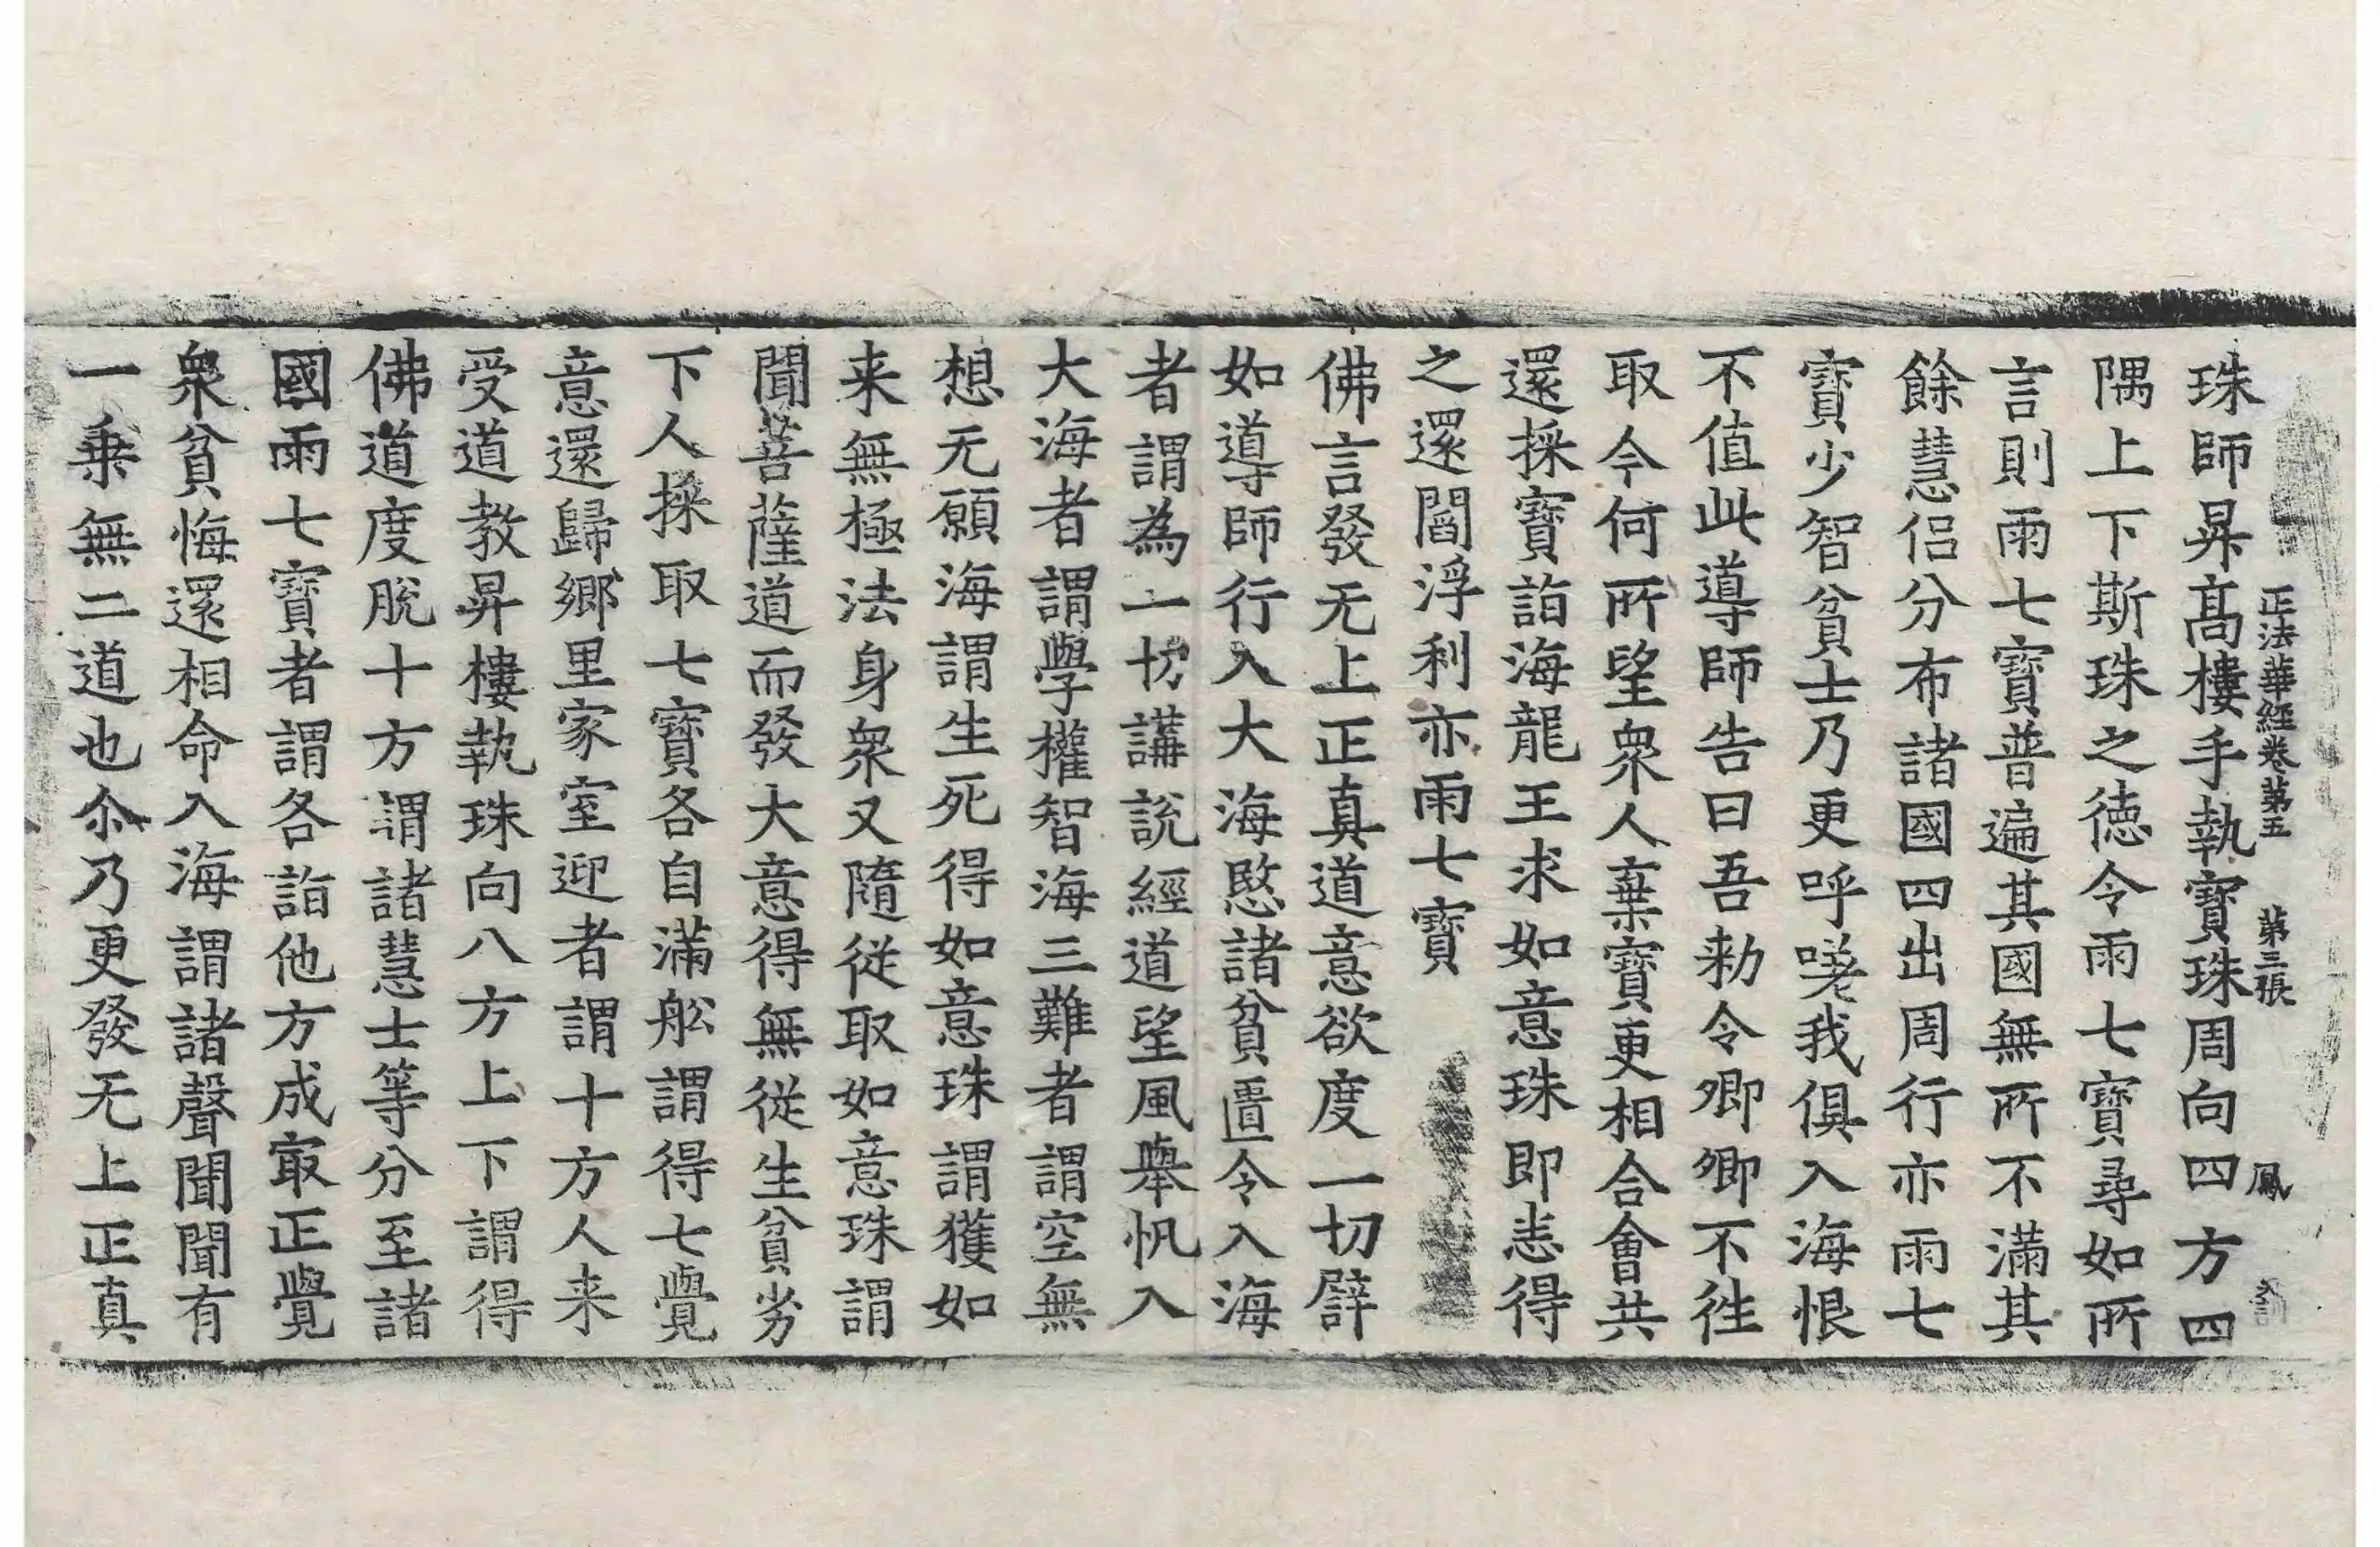 正法華經卷第五　第三張　鳳
珠師昇高樓手執寶珠周向四方四
隅上下斯珠之德令雨七寶尋如所
言則雨七寶普遍其國無所不滿其
餘慧侶分布諸國四出周行亦雨七
寶少智貧士乃更呼嗟我俱入海恨
不值此導師告曰吾勑令卿卿不徃
取今何所望衆人棄寶更相合會共
還採寶詣海龍王求如意珠即恚得
之還閻浮利亦雨七寶
佛言發无上正真道意欲度一切譬
如導師行入大海愍諸貧匱令入海
者謂為一切講說經道望風舉帆入
大海者謂學權智海三難者謂空無
想无願海謂生死得如意珠謂獲如
来無極法身衆又隨從取如意珠謂
聞菩薩道而發大意得無從生貧劣
下人採取七寶各自滿舩謂得七覺
意還歸鄉里家室迎者謂十方人来
受道教昇樓執珠向八方上下謂得
佛道度脫十方謂諸慧士等分至諸
國雨七寶者謂各詣他方成㝡正覺
衆貧悔還相命入海謂諸聲聞聞有
一乗無二道也尒乃更發无上正真